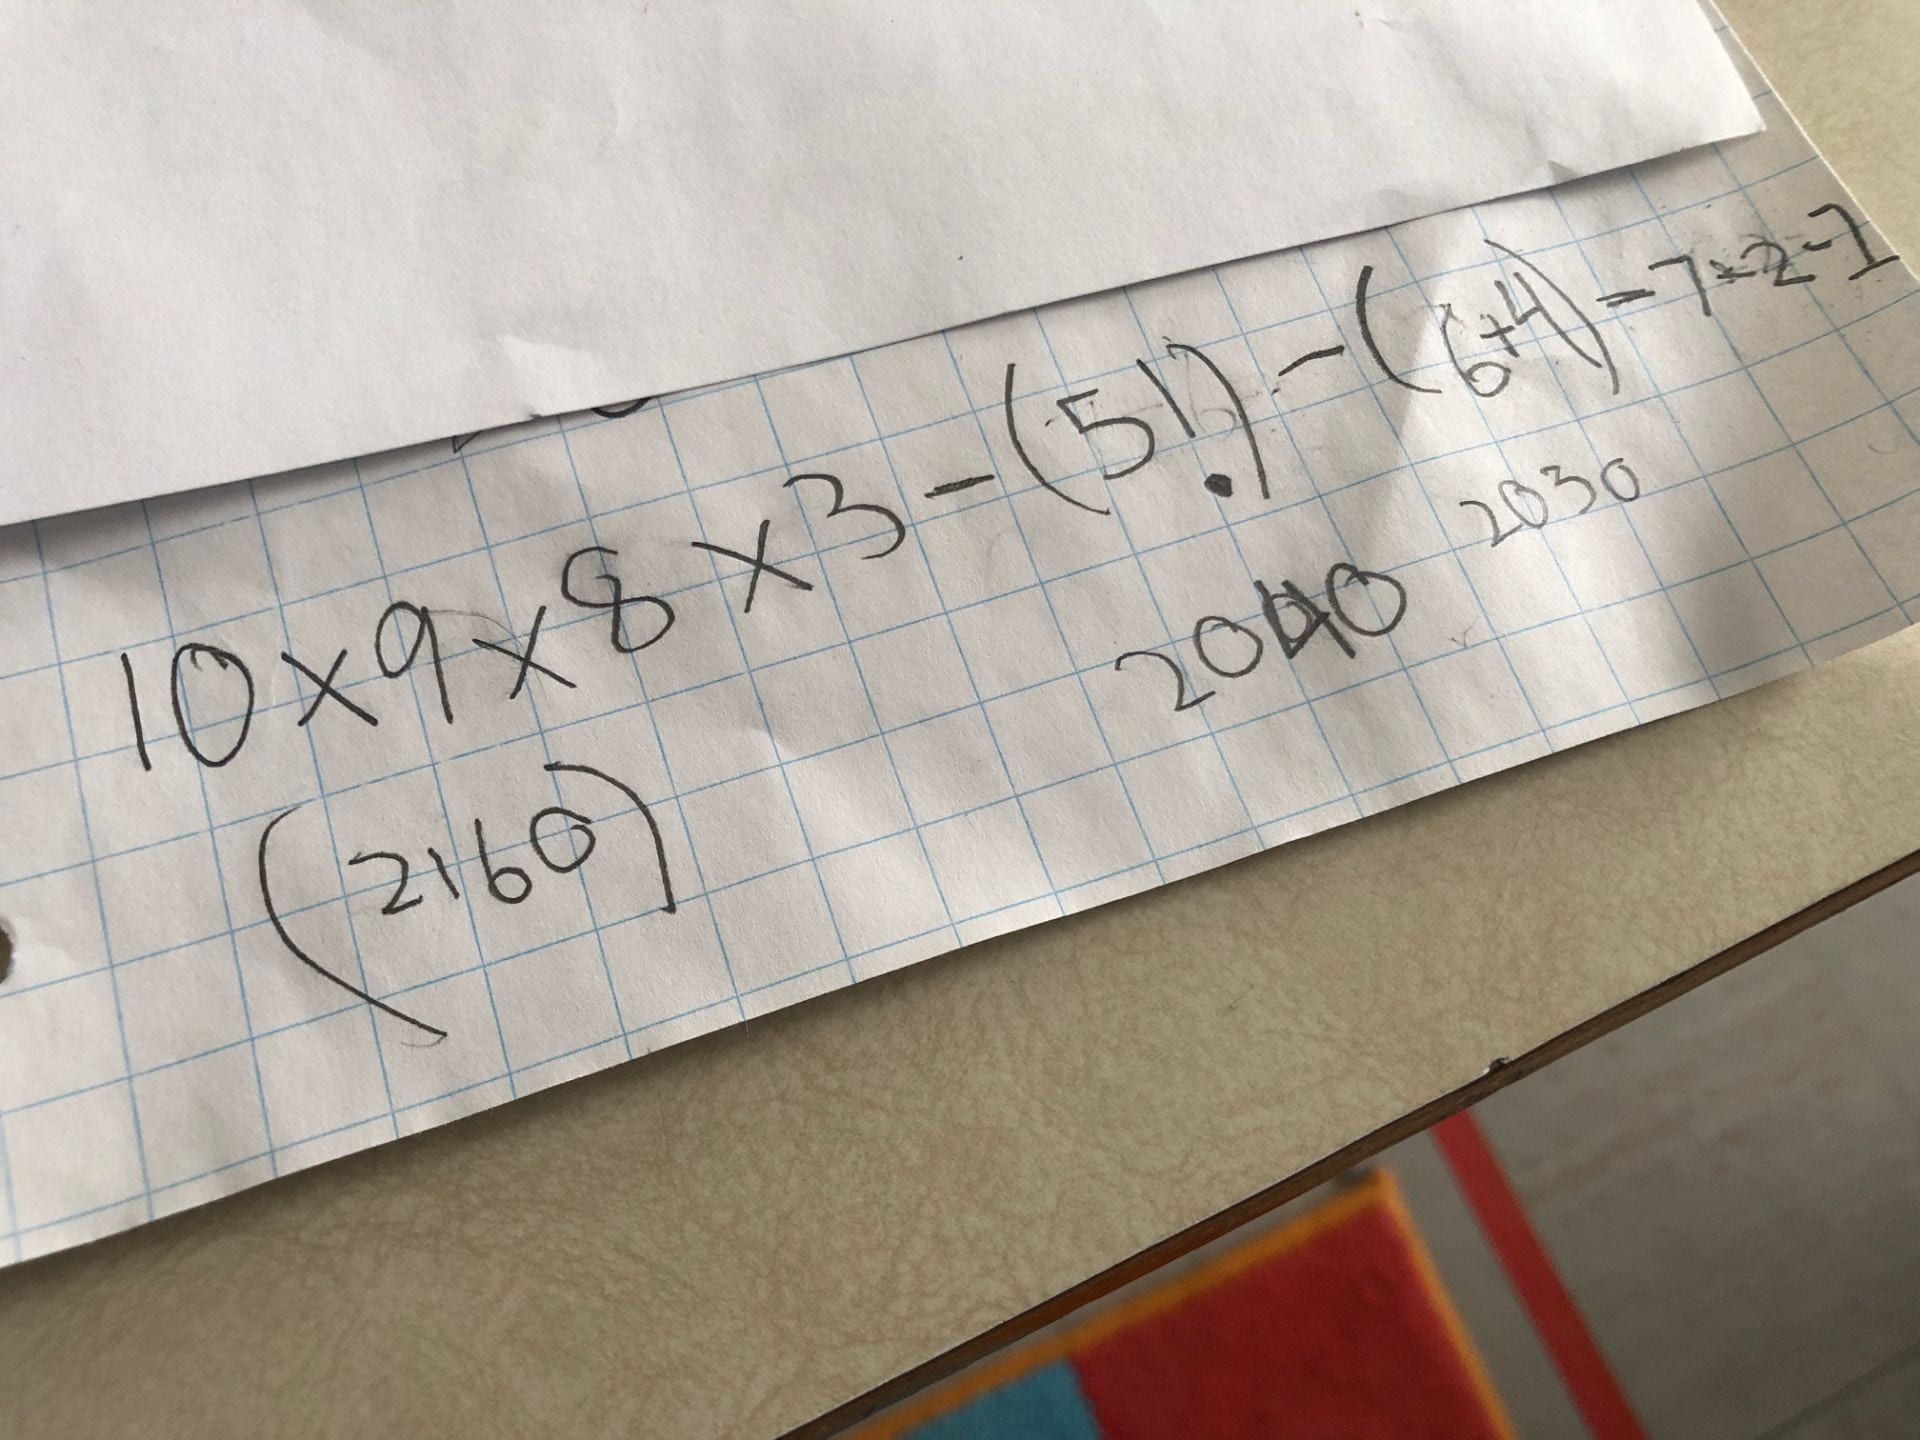 10×9×8×3-(5!)-(6+4)-7×2-1
2030
2040
(2160)